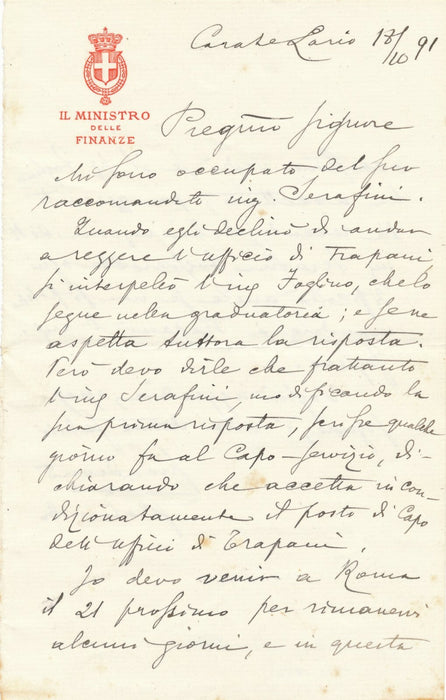 Carate Lario 18/10 91
IL MINISTRO
DELLE
FINANZE
Pregmo Signore
Mi sono occupato del suo
raccomandato ing. Serafini.
Quando egli declinò di andar
a reggere l'ufficio di Trapani
si interpellò l'ing Foglino, che lo
segue nella graduatoria; e se ne
aspetta tuttora la risposta.
Però devo dirle che frattanto
l'ing Serafini, modificando la
sua prima risposta, scrisse qualche
giorno fa al Capo-servizio, di-
chiarando che accetta incon-
dizionatamente il posto di Capo
dell'ufficio di Trapani.
Io devo venir a Roma
il 21 prossimo per rimanervi
alcuni giorni, e in questa